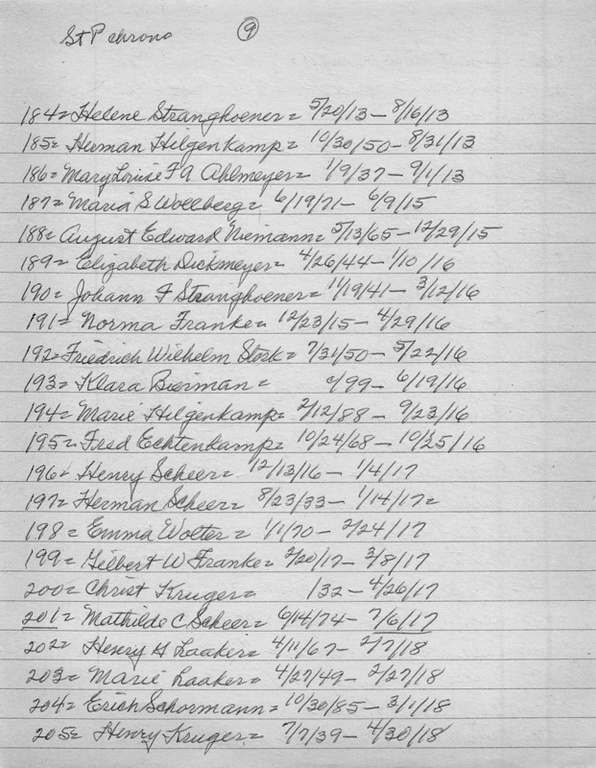 St P chrono 9
184= Helene Stranghoener = 5/20/13 - 8/16/13
185= Herman Hilgenkamp = 10/30/50 - 8/31/13
186= Mary Louise F A Ahlmeyer = 1/9/37 - 9/1/13
187= Maria S Wollberg = 6/19/71 - 6/9/15
188= August Edward Niemann = 5/13/65 - 12/29/15
189= Elizabeth Dickmeyer = 4/26/44 - 1/10/16
190= Johann F Stranghoener = 11/19/41 - 3/12/16
191= Norma Franke = 12/23/15 - 4/29/16
192= Friedrich Wilhelm Stork = 7/31/50 - 5/22/16
193= Klara Bierman = c/99 - 6/19/16
194= Marie Hilgenkamp = 2/12/88 - 9/23/16
195= Fred Echtenkamp = 10/24/68 - 10/25/16
196= Henry Scheer = 12/13/16 - 1/4/17
197= Herman Scheer = 8/23/33 - 1/14/17 =
198= Emma Wolter = 1/1/70 - 2/24/17
199= Gilbert W Franke = 2/20/17 - 3/8/17
200= Christ Kruger = /32 - 4/26/17
201= Mathilde C Scheer = 6/14/74 - 7/6/17
202= Henry H Laaker = 4/11/67 - 2/7/18
203= Marie Laaker = 4/27/49 - 2/27/18
204= Erich Schormann = 10/30/85 - 3/1/18
205= Henry Kruger = 7/7/39 - 4/30/18